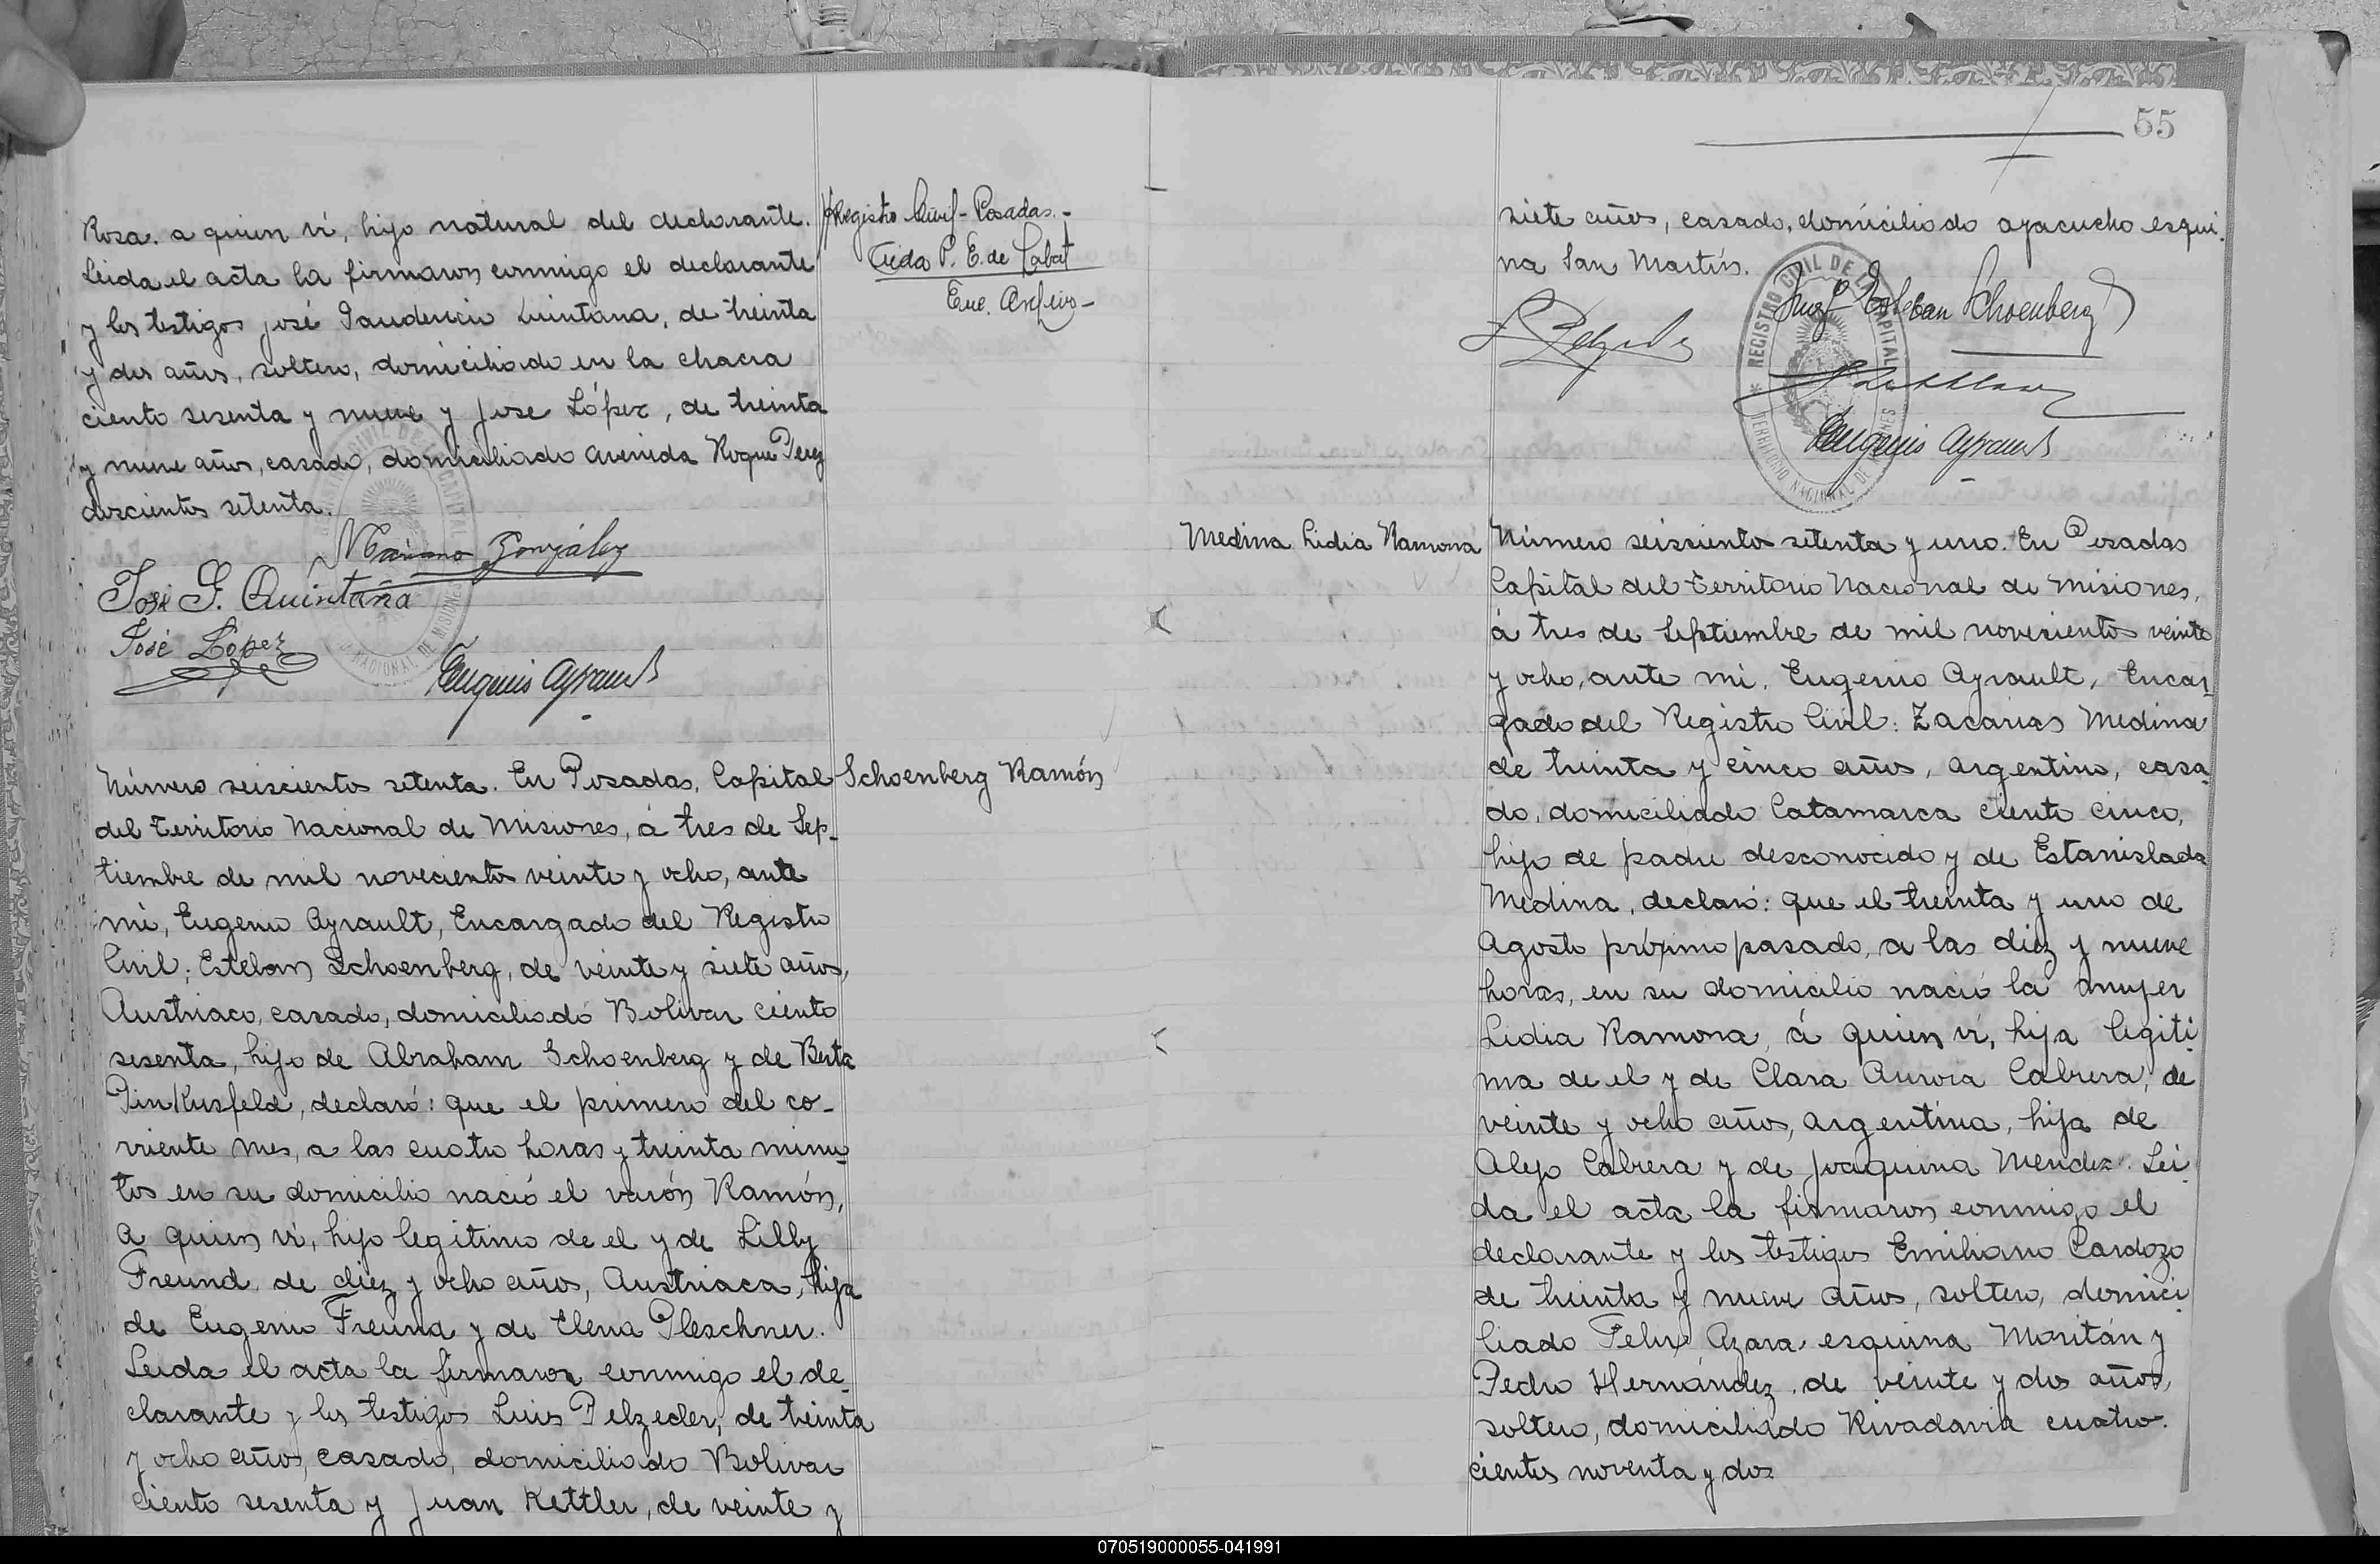 Rosa. a quien ví, hijo natural del declarante.
Leida el acta la firmaron conmigo el declarante
y los testigos José Gaudencio Quintana, de treinta
y dos años, soltero, domiciliado en la chacra
ciento sesenta y nueve y José López, de treinta
y nueve años, casado, domiciliado Avenida Roque Perez
doscientos setenta.
Mariano González
José G. Quintana
José López
Eugenio Ayrault
Registro Civil - Posadas.-
P. E. de
Enc. Archivo-
Número seiscientos setenta. En Posadas, Capital
Schoenberg Ramón
del Territorio Nacional de Misiones, á tres de Sep-
tiembre de mil novecientos veinte y ocho, ante
mi, Eugenio Ayrault, Encargado del Registro
Civil: Esteban Schoenberg, de veinte y siete años,
Austriaco, casado, domiciliado Bolivar ciento
sesenta, hijo de Abraham Schoenberg y de Berta
Pinkusfeld, declaró: que el primero del co-
rriente mes, a las cuatro horas y treinta minu-
tos en su domicilio nació el varón Ramón,
a quien ví, hijo legitimo de el y de Lilly
Freund, de diez y ocho años, Austriaca, hija
de Eugenio Freund y de Elena Pleschner.
Leida el acta la firmaron conmigo el de-
clarante y los testigos Luis Pelzeder, de treinta
y ocho años, casado, domiciliado Bolivar
ciento sesenta y Juan Kettler, de veinte y
55
siete años, casado, domiciliado Ayacucho esqui-
na San Martín.
REGISTRO CIVIL DE LA CAPITAL
TERRITORIO NACIONAL DE MISIONES
Esteban Schoenberg
Eugenio Ayrault
Medina Lidia Ramona
Número seiscientos setenta y uno. En Posadas
Capital del Territorio Nacional de Misiones,
á tres de Septiembre de mil novecientos veinte
y ocho, ante mi, Eugenio Ayrault, Encar-
gado del Registro Civil: Zacarias Medina
de treinta y cinco años, Argentino, casa-
do, domiciliado Catamarca ciento cinco,
hijo de padre desconocido y de Estanislada
Medina, declaró: que el treinta y uno de
Agosto próximo pasado, a las diez y nueve
horas, en su domicilio nació la mujer
Lidia Ramona, á quien ví, hija legiti-
ma de el y de Clara Aurora Cabrera, de
veinte y ocho años, Argentina, hija de
Alejo Cabrera y de Joaquina Mendez. Lei-
da el acta la firmaron conmigo el
declarante y los testigos Emiliano Cardozo
de treinta y nueve años, soltero, domici-
liado Felix Azara esquina Moritán y
Pedro Hernández, de veinte y dos años,
soltero, domiciliado Rivadavia cuatro-
cientos noventa y dos
070519000055-041991